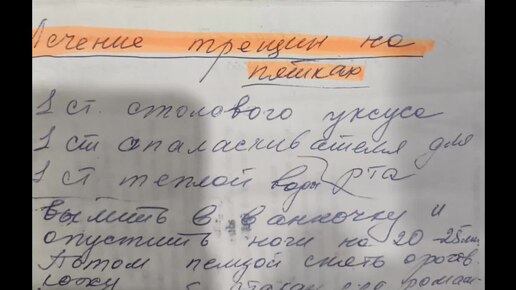 Лечение трещин на
пятках
1 ст. столового уксуса
1 ст опаласкивателя для
1 ст теплой воды рта
вылить в ванночку и
опустить ноги на 20-25мин
Потом пемзой снять орогев.
кожу